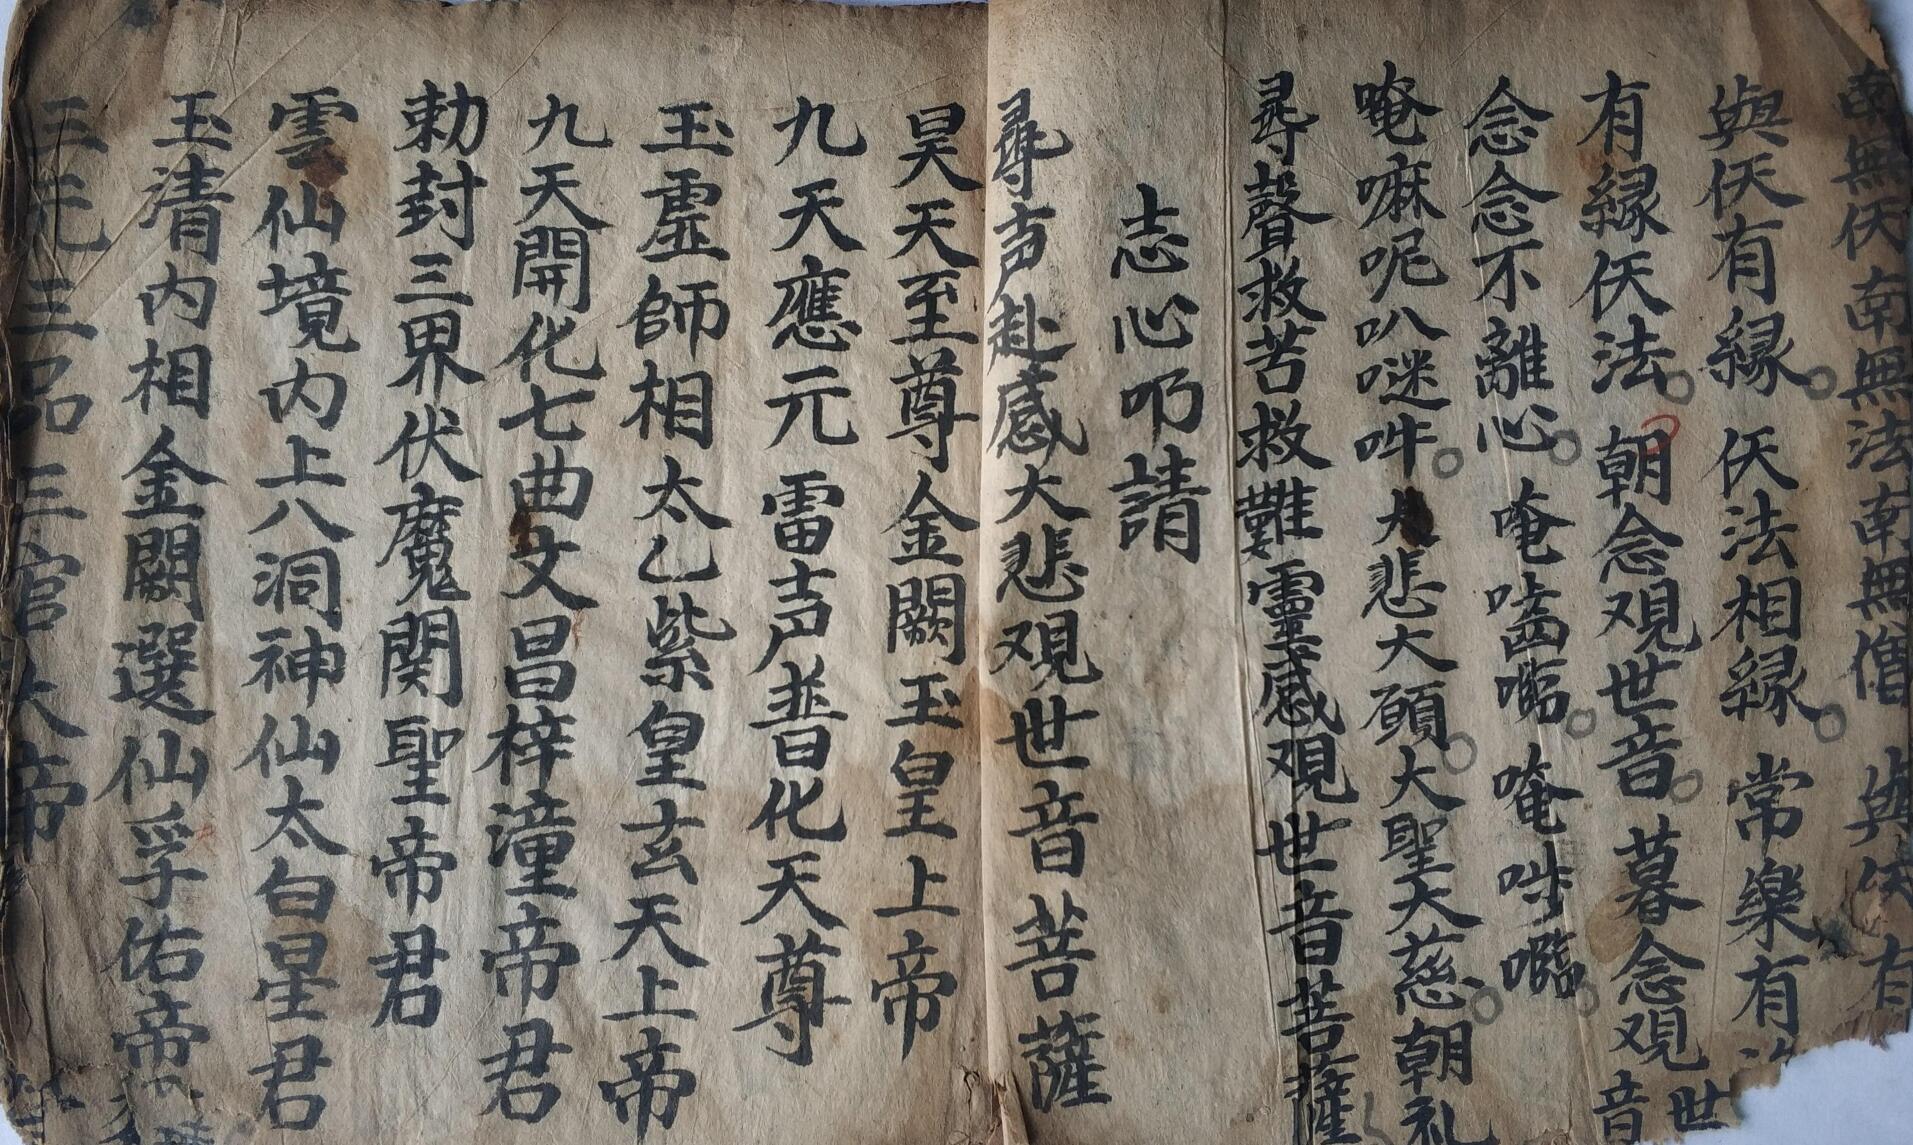 南無仸南無法南無僧 與仸有
與仸有縁 仸法相縁 常樂有
有縁仸法 朝念观世音 暮念观世音
念念不離心 唵㗇㘕 唵㘄
唵嘛呢叭㘝吽 大悲大願 大聖大慈 朝礼
尋聲救苦救難靈感观世音菩薩
志心叩請
尋声赴感大悲观世音菩薩
昊天至尊金闕玉皇上帝
九天應元雷声普化天尊
玉虛師相太乙紫皇玄天上帝
九天開化七曲文昌梓潼帝君
勅封三界伏魔関聖帝君
雲仙境内上八洞神仙太白星君
玉清内相金闕選仙孚佑帝
三元三品三官大帝